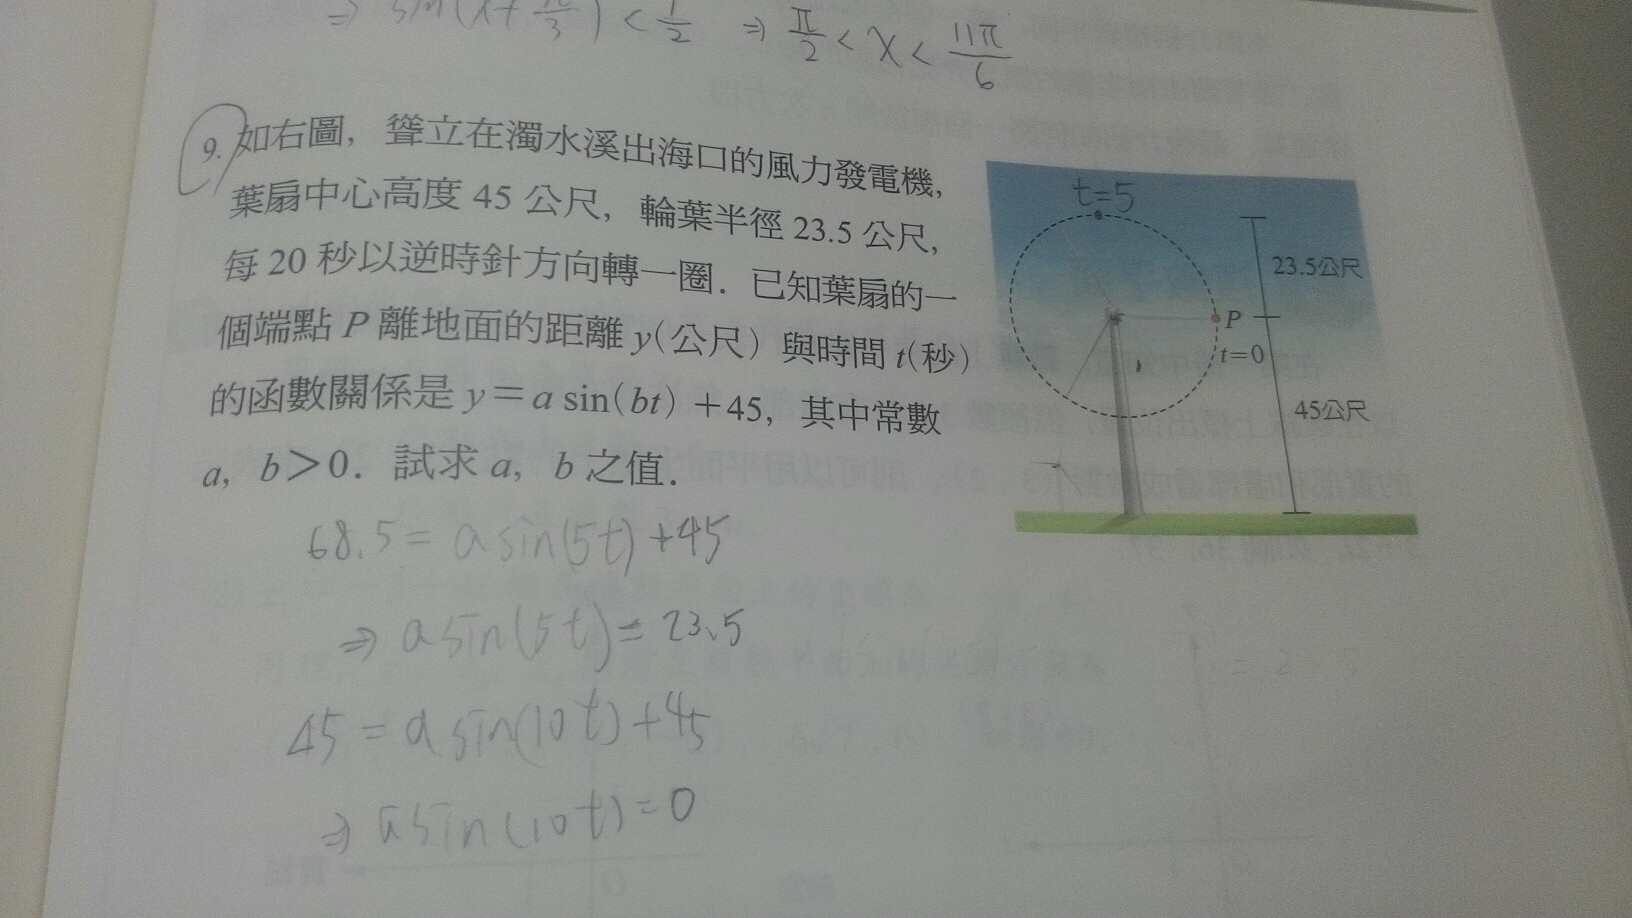 ⇒ sin(x+π/3) < 1/2 ⇒ π/2 < x < 11π/6
9. 如右圖，聳立在濁水溪出海口的風力發電機，
葉扇中心高度 45 公尺，輪葉半徑 23.5 公尺，
每 20 秒以逆時針方向轉一圈．已知葉扇的一
個端點 P 離地面的距離 y(公尺) 與時間 t(秒)
的函數關係是 y＝a sin(bt)＋45，其中常數
a，b＞0．試求 a，b 之值．
t=5
23.5公尺
P
t=0
45公尺
68.5 = a sin(5t)+45
⇒ a sin(5t) = 23.5
45 = a sin(10t)+45
⇒ a sin(10t) = 0